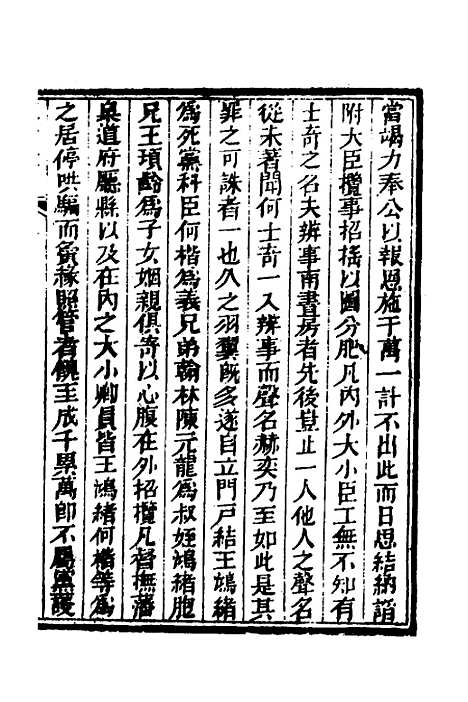 當竭力奉公以報恩施于萬一計不出此而日思結納諂
附大臣攬事招搖以圖分肥凡內外大小臣工無不知有
士奇之名夫辨事南書房者先後豈止一人他人之聲名
從未著聞何士奇一入辨事而聲名赫奕乃至如此是其
罪之可誅者一也久之羽翼既多遂自立門戶結王鴻緒
為死黨科臣何楷為義兄弟翰林陳元龍為叔姪鴻緒胞
兄王頊齡為子女姻親俱寄以心腹在外招攬凡督撫藩
臬道府廳縣以及在內之大小卿員皆王鴻緒何楷等為
之居停哄騙而夤緣照管者餽至成千累萬即不屬黨護